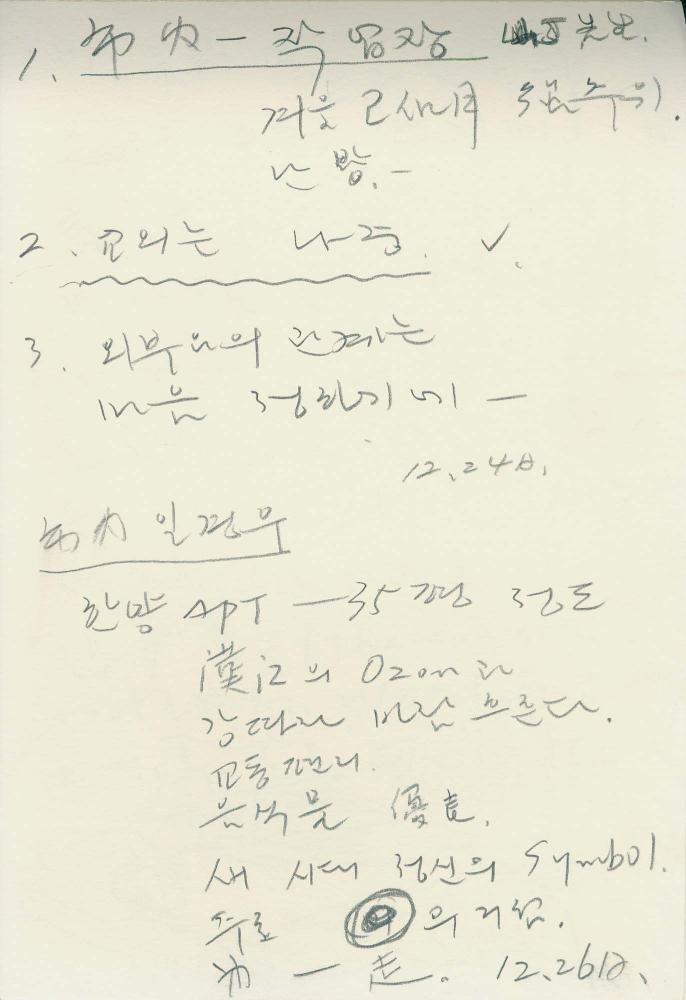 1. 市内 — 작업장 先生.
겨울
난방. —
2. 교외는 나중. ✓.
3. 외부와의 관계는
마음 정하기에 —
12.24日.
市内 일경우
한방 APT — 35평 정도
漢江의 Ozon과
강따라 바람 흐른다.
교통 편리.
음식물 優良.
새 시대 정신의 Symbol.
수로 의
内 — 走. 12.26日.